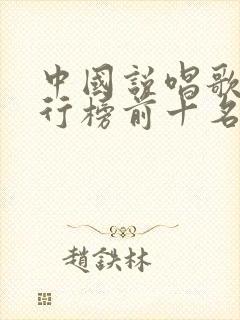 中國說唱歌
行榜前十名
趙鉄林